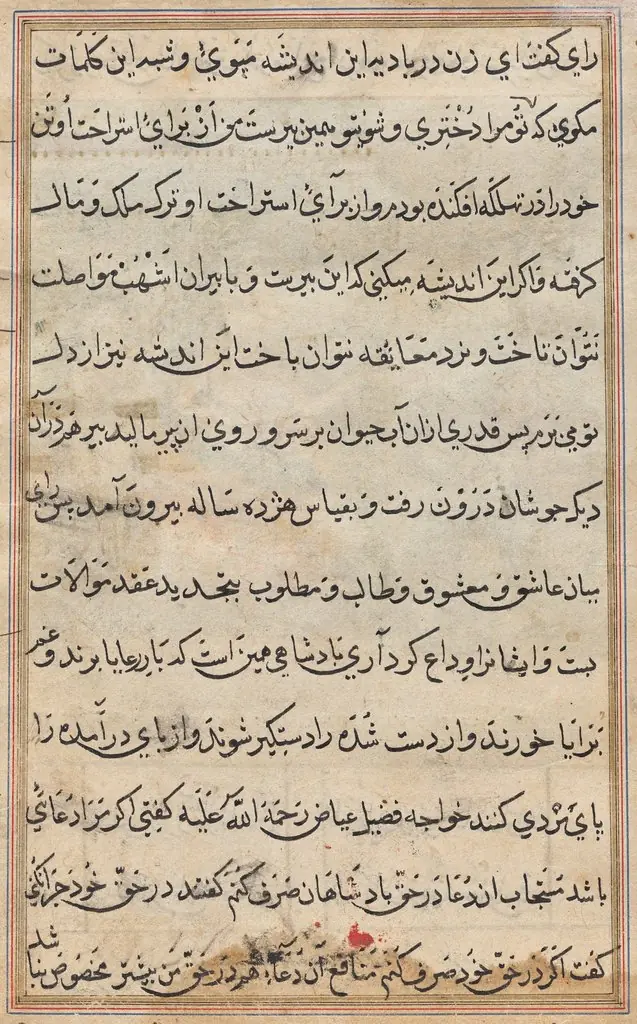 رای گفت ای زن دریا دید این اندیشه مپوی و شبه این کلمات
مکوی که تو مرا دختری و شوی تو همین پیرست من از برای استراحت او تن
خود را در تهلکه افکنده بودم و از برای استراحت او ترک ملک و مال
کرفته و اکر این اندیشه میکنی که این پیرست و با پیران اشهب مواصلت
نتوان تاخت و نرد معانقه نتوان باخت این اندیشه نیز از دل
تو می برم پس قدری ازان آب حیوان بر سر و روی ان پیر مالید پیر هم دران
دیک جوشان درون رفت و بقیاس هژده ساله بیرون آمد پس رای
میان عاشق و معشوق و طالب و مطلوب بتجدید عقد موالات
بست و ایشانرا وداع کرد آری پادشاهی همین است که بار رعایا برند و غم
برایا خورند و از دست شده را دستکیر شوند و از پای درآمده را
پای مردی کنند خواجه فضیل عیاض رحمة الله علیه کفتی اکر مرا دعائی
باشد مستجاب ان دعا در حق بادشاهان صرف کنم کفتند در حق خود چرا نکنی
کفت اکر در حق خود صرف کنم منافع آن دعا هم در حق من بیشتر مخصوص نباشد